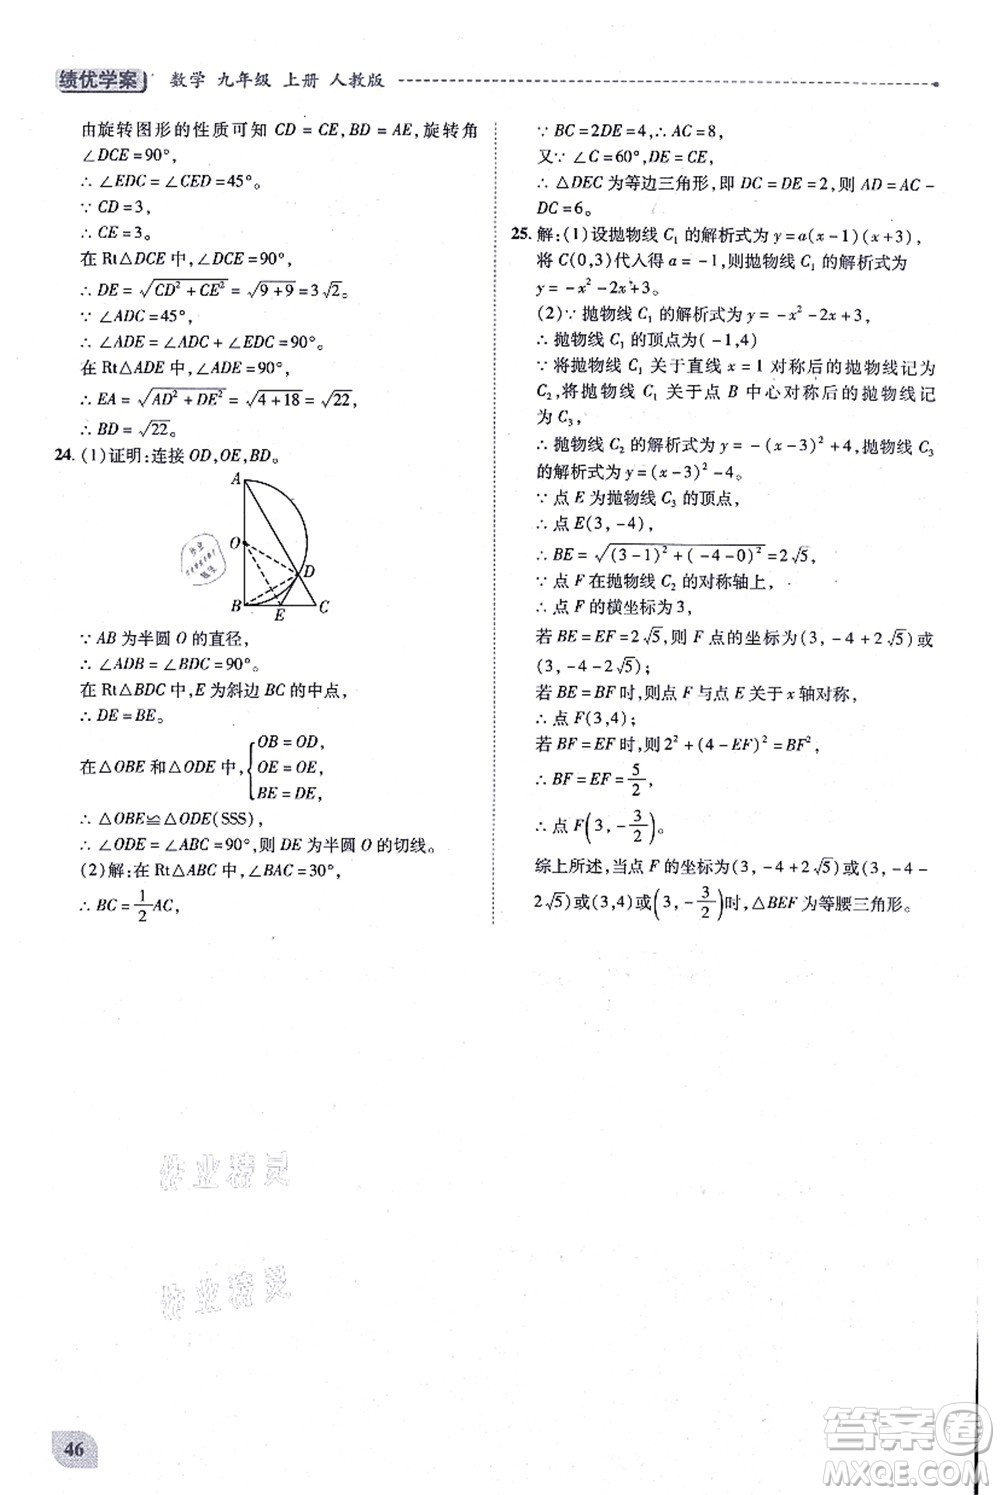 绩优学案 数学 九年级 上册 人教版
由旋转图形的性质可知 CD=CE,BD=AE,旋转角
∠DCE=90°,
∴∠EDC=∠CED=45°。
∵CD=3,
∴CE=3。
在 Rt△DCE 中,∠DCE=90°,
∴DE=√(CD²+CE²)=√(9+9)=3√2。
∵∠ADC=45°,
∴∠ADE=∠ADC+∠EDC=90°。
在 Rt△ADE 中,∠ADE=90°,
∴EA=√(AD²+DE²)=√(4+18)=√22,
∴BD=√22。
24. (1)证明:连接 OD,OE,BD。
A
O
D
B
E
C
∵AB 为半圆 O 的直径,
∴∠ADB=∠BDC=90°。
在 Rt△BDC 中,E 为斜边 BC 的中点,
∴DE=BE。
在△OBE 和△ODE 中,{OB=OD,
OE=OE,
BE=DE,
∴△OBE≌△ODE(SSS),
∴∠ODE=∠ABC=90°,则 DE 为半圆 O 的切线。
(2)解:在 Rt△ABC 中,∠BAC=30°,
∴BC=1/2 AC,
∵BC=2DE=4,∴AC=8,
又∵∠C=60°,DE=CE,
∴△DEC 为等边三角形,即 DC=DE=2,则 AD=AC-
DC=6。
25. 解:(1)设抛物线 C₁ 的解析式为 y=a(x-1)(x+3),
将 C(0,3)代人得 a=-1,则抛物线 C₁ 的解析式为
y=-x²-2x+3。
(2)∵抛物线 C₁ 的解析式为 y=-x²-2x+3,
∴抛物线 C₁ 的顶点为(-1,4)
∵将抛物线 C₁ 关于直线 x=1 对称后的抛物线记为
C₂,将抛物线 C₁ 关于点 B 中心对称后的抛物线记
为 C₃,
∴抛物线 C₂ 的解析式为 y=-(x-3)²+4,抛物线 C₃
的解析式为 y=(x-3)²-4。
∵点 E 为抛物线 C₃ 的顶点,
∴点 E(3,-4),
∴BE=√((3-1)²+(-4-0)²)=2√5,
∵点 F 在抛物线 C₂ 的对称轴上,
∴点 F 的横坐标为 3,
若 BE=EF=2√5,则 F 点的坐标为(3,-4+2√5)或
(3,-4-2√5);
若 BE=BF时,则点 F 与点 E 关于 x 轴对称,
∴点 F(3,4);
若 BF=EF 时,则 2²+(4-EF)²=BF²,
∴BF=EF=5/2,
∴点 F(3,-3/2)。
综上所述,当点 F 的坐标为(3,-4+2√5)或(3,-4-
2√5)或(3,4)或(3,-3/2)时,△BEF 为等腰三角形。
46
答案圈
MXQE.COM